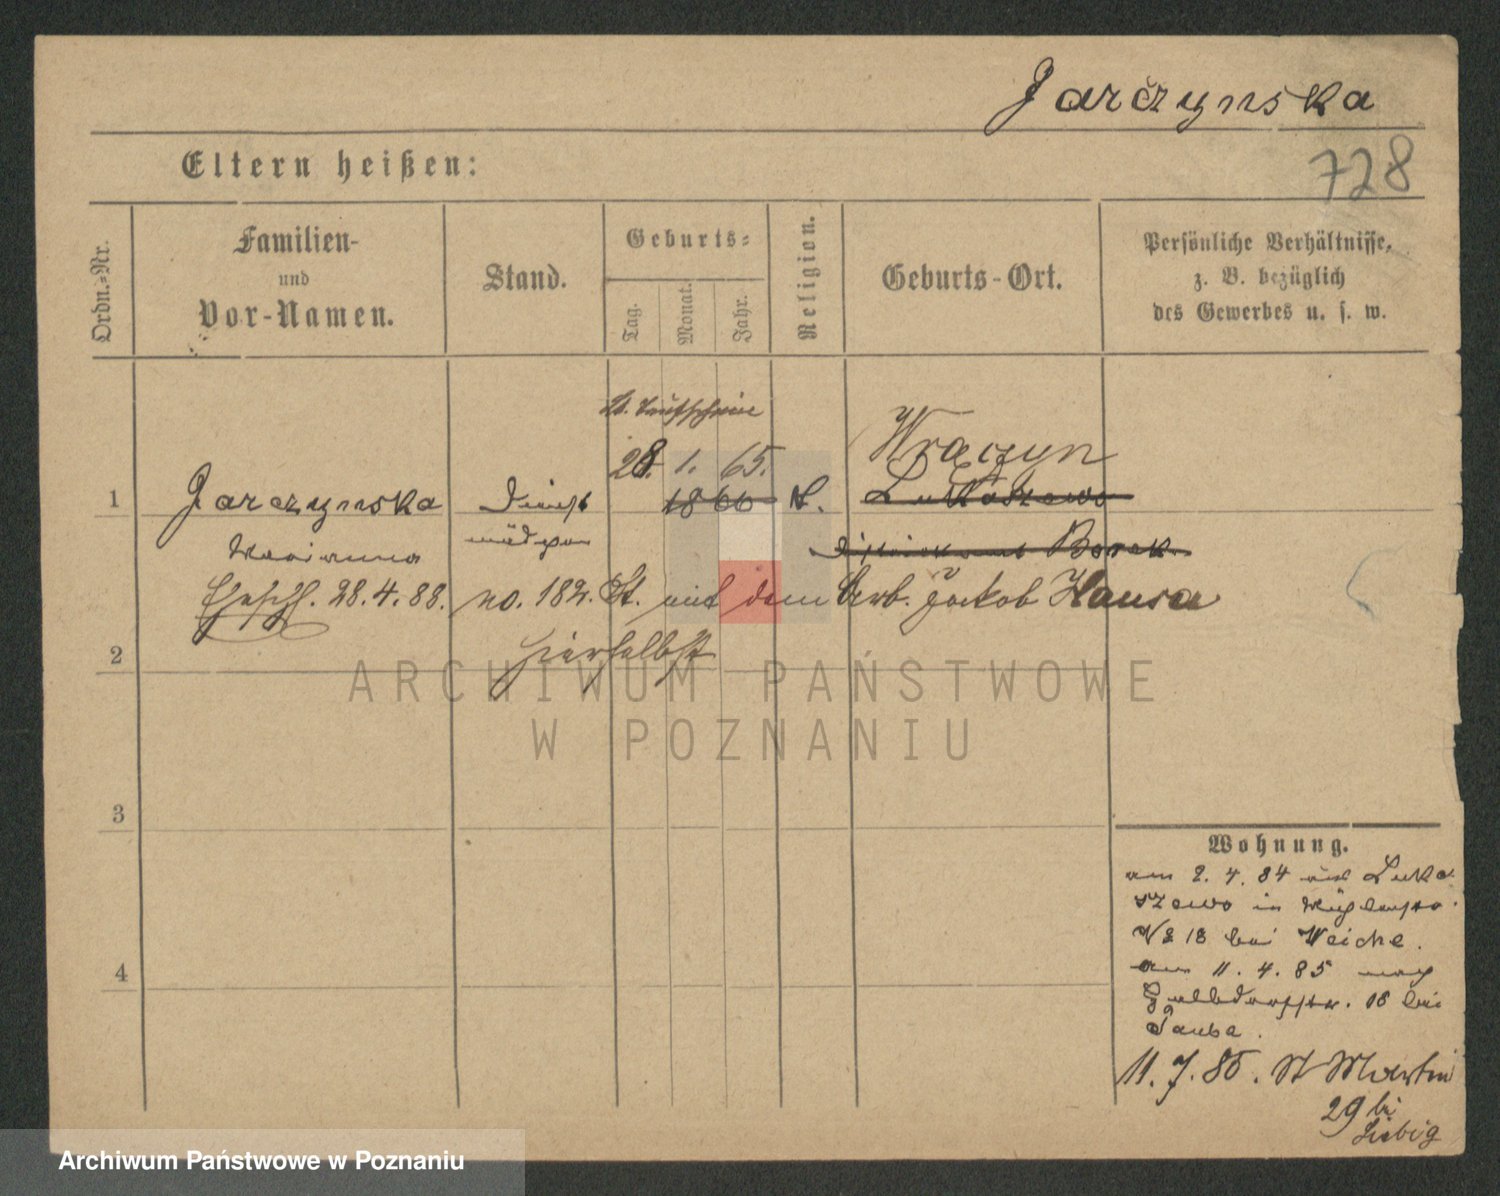 Jarczynska
728
Eltern heißen:
Ordn.-Nr.
Familien-
und
Vor-Namen.
Stand.
Geburts-
Tag.
Monat.
Jahr.
Religion.
Geburts-Ort.
Persönliche Verhältnisse,
z. B. bezüglich
des Gewerbes u. s. w.
lt. Taufschein
28. 1. 65.
Wraczyn
1 Jarczynska Dienst 1866 k. Lukaszewo
Marianna mädchen Distriktsamt Borek
Eheschl. 28.4.88. no. 182. St. mit dem Arb. Jakob Hausa
hierselbst
2
3
4
Wohnung.
am 2. 4. 84 aus Luka
szewo in Mühlenstr.
N 18 bei Weiche.
am 11. 4. 85 nach
Halbdorfstr. 18 bei
11. 7. 85. St Martin
29 bei
Liebig
ARCHIWUM PAŃSTWOWE
W POZNANIU
Archiwum Państwowe w Poznaniu